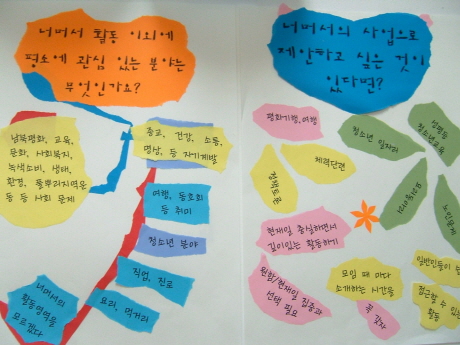 너머서 활동 이외에
평소에 관심 있는 분야는
무엇인가요?
남북평화, 교육,
문화, 사회복지,
녹색소비, 생태,
환경, 풀뿌리지역운
동 등 사회 문제
종교, 건강, 소통,
명상, 등 자기계발
여행, 동호회
등 취미
청소년 분야
직업, 진로
요리, 먹거리
너머서의
활동영역을
모르겠다
너머서의 사업으로
제안하고 싶은 것이
있다면?
평화기행, 여행
청소년 일자리
성평등
청소년교육
체력단련
정책토론
요리동아리
노인문제
현재일 충실하면서
깊이있는 활동하기
원함/현재일 집중과
선택 필요
모일 때 마다
소개하는 시간을
꼭 갖자
일반인들이 쉽
접근할 수 있는
활동